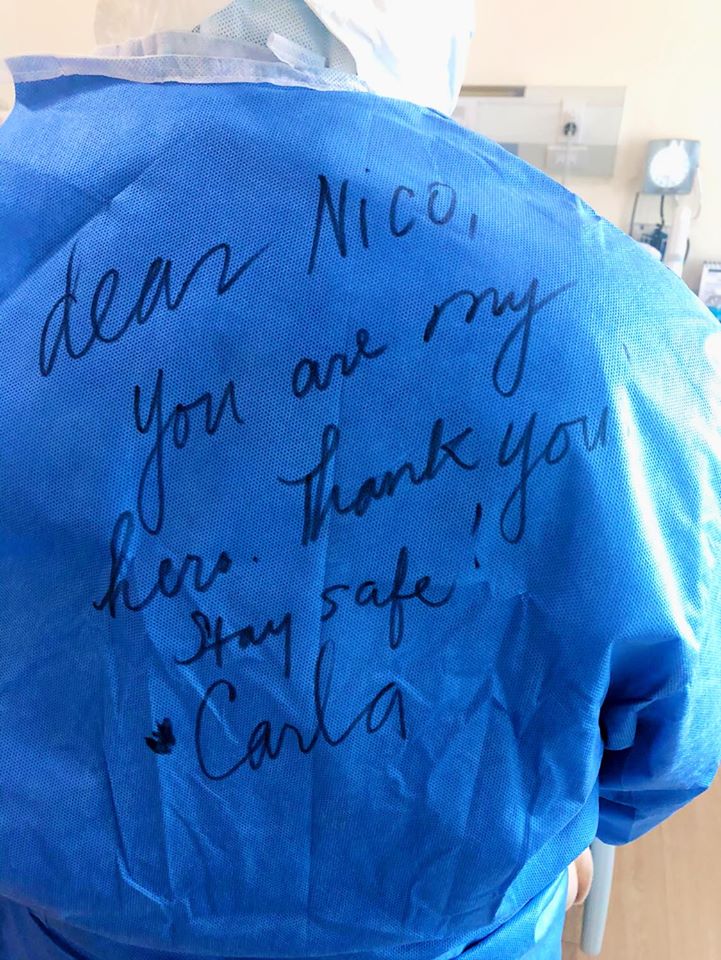 dear Nico,
you are my
hero. Thank you
stay safe!
Carla